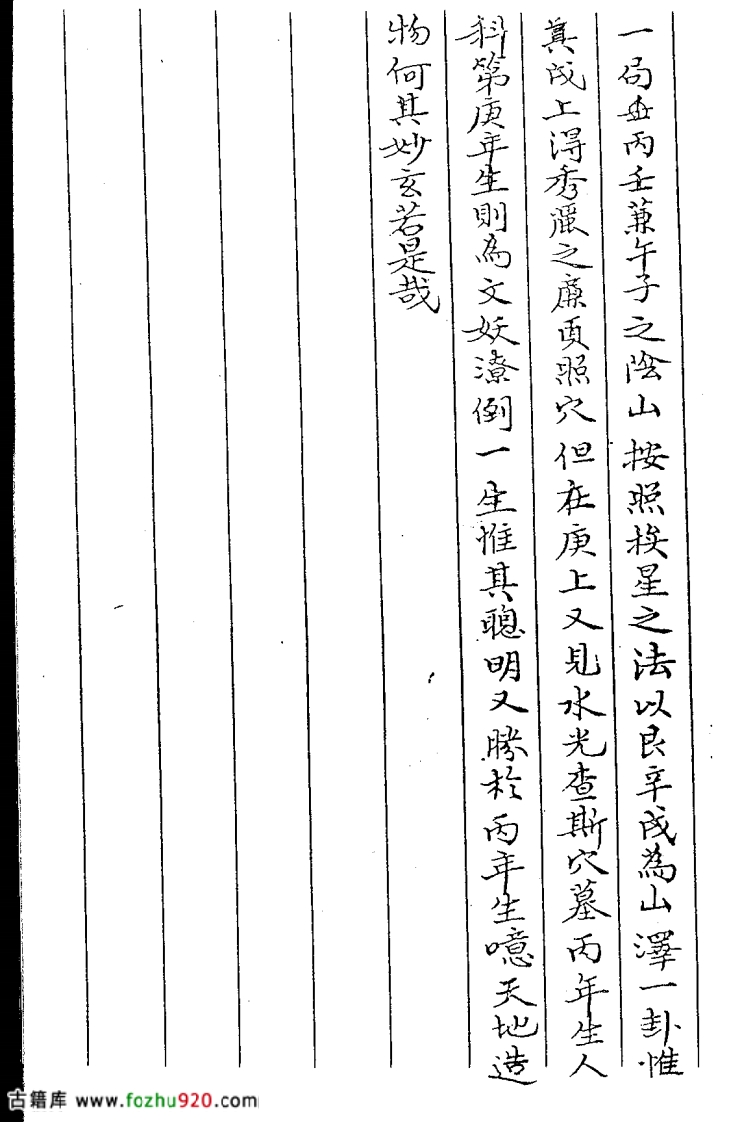 一局丙壬兼午子之陰山按照挨星之法以艮辛戌為山澤一卦惟
其戌上得秀麗之廉貞照穴但在庚上又見水光查斯穴墓丙年生人
科第庚年生則為文妖潦倒一生惟其聰明又勝於丙年生噫天地造
物何其妙玄若是哉
古籍库 www.fozhu920.com